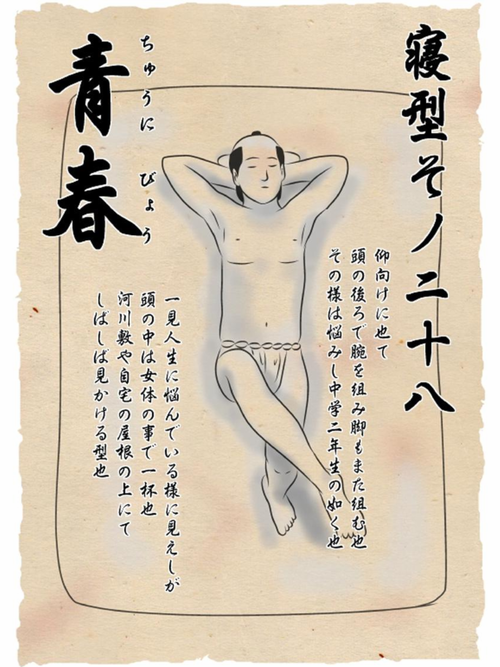 寝型その二十八
仰向けに也て
頭の後ろで腕を組み脚もまた組む也
その様は悩みし中学二年生の如く也
青春
ちゅうに びょう
一見人生に悩んでいる様に見えしが
頭の中は女体の事で一杯也
河川敷や自宅の屋根の上にて
しばしば見かける型也